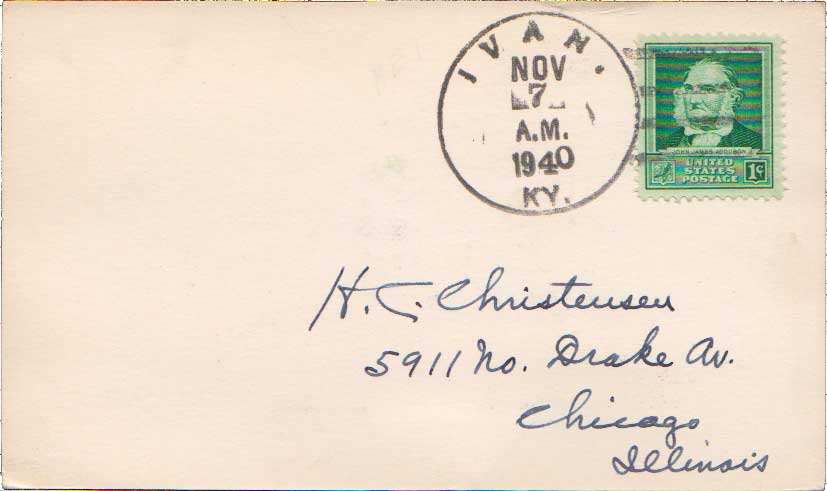 IVAN.
NOV
7
A.M.
1940
KY.
JOHN JAMES AUDUBON
UNITED
STATES
POSTAGE
1¢
H. C. Christensen
5911 No. Drake Av.
Chicago
Illinois